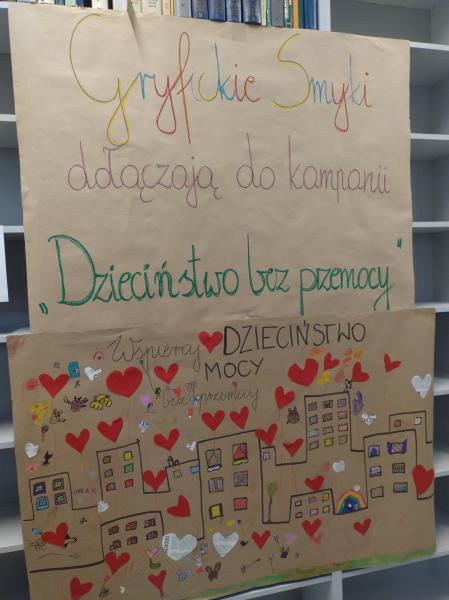 Gryfickie Smyki
dołączają do kampanii
„Dzieciństwo bez przemocy"
Wspieraj DZIECIŃSTWO
MOCY
bez przemocy